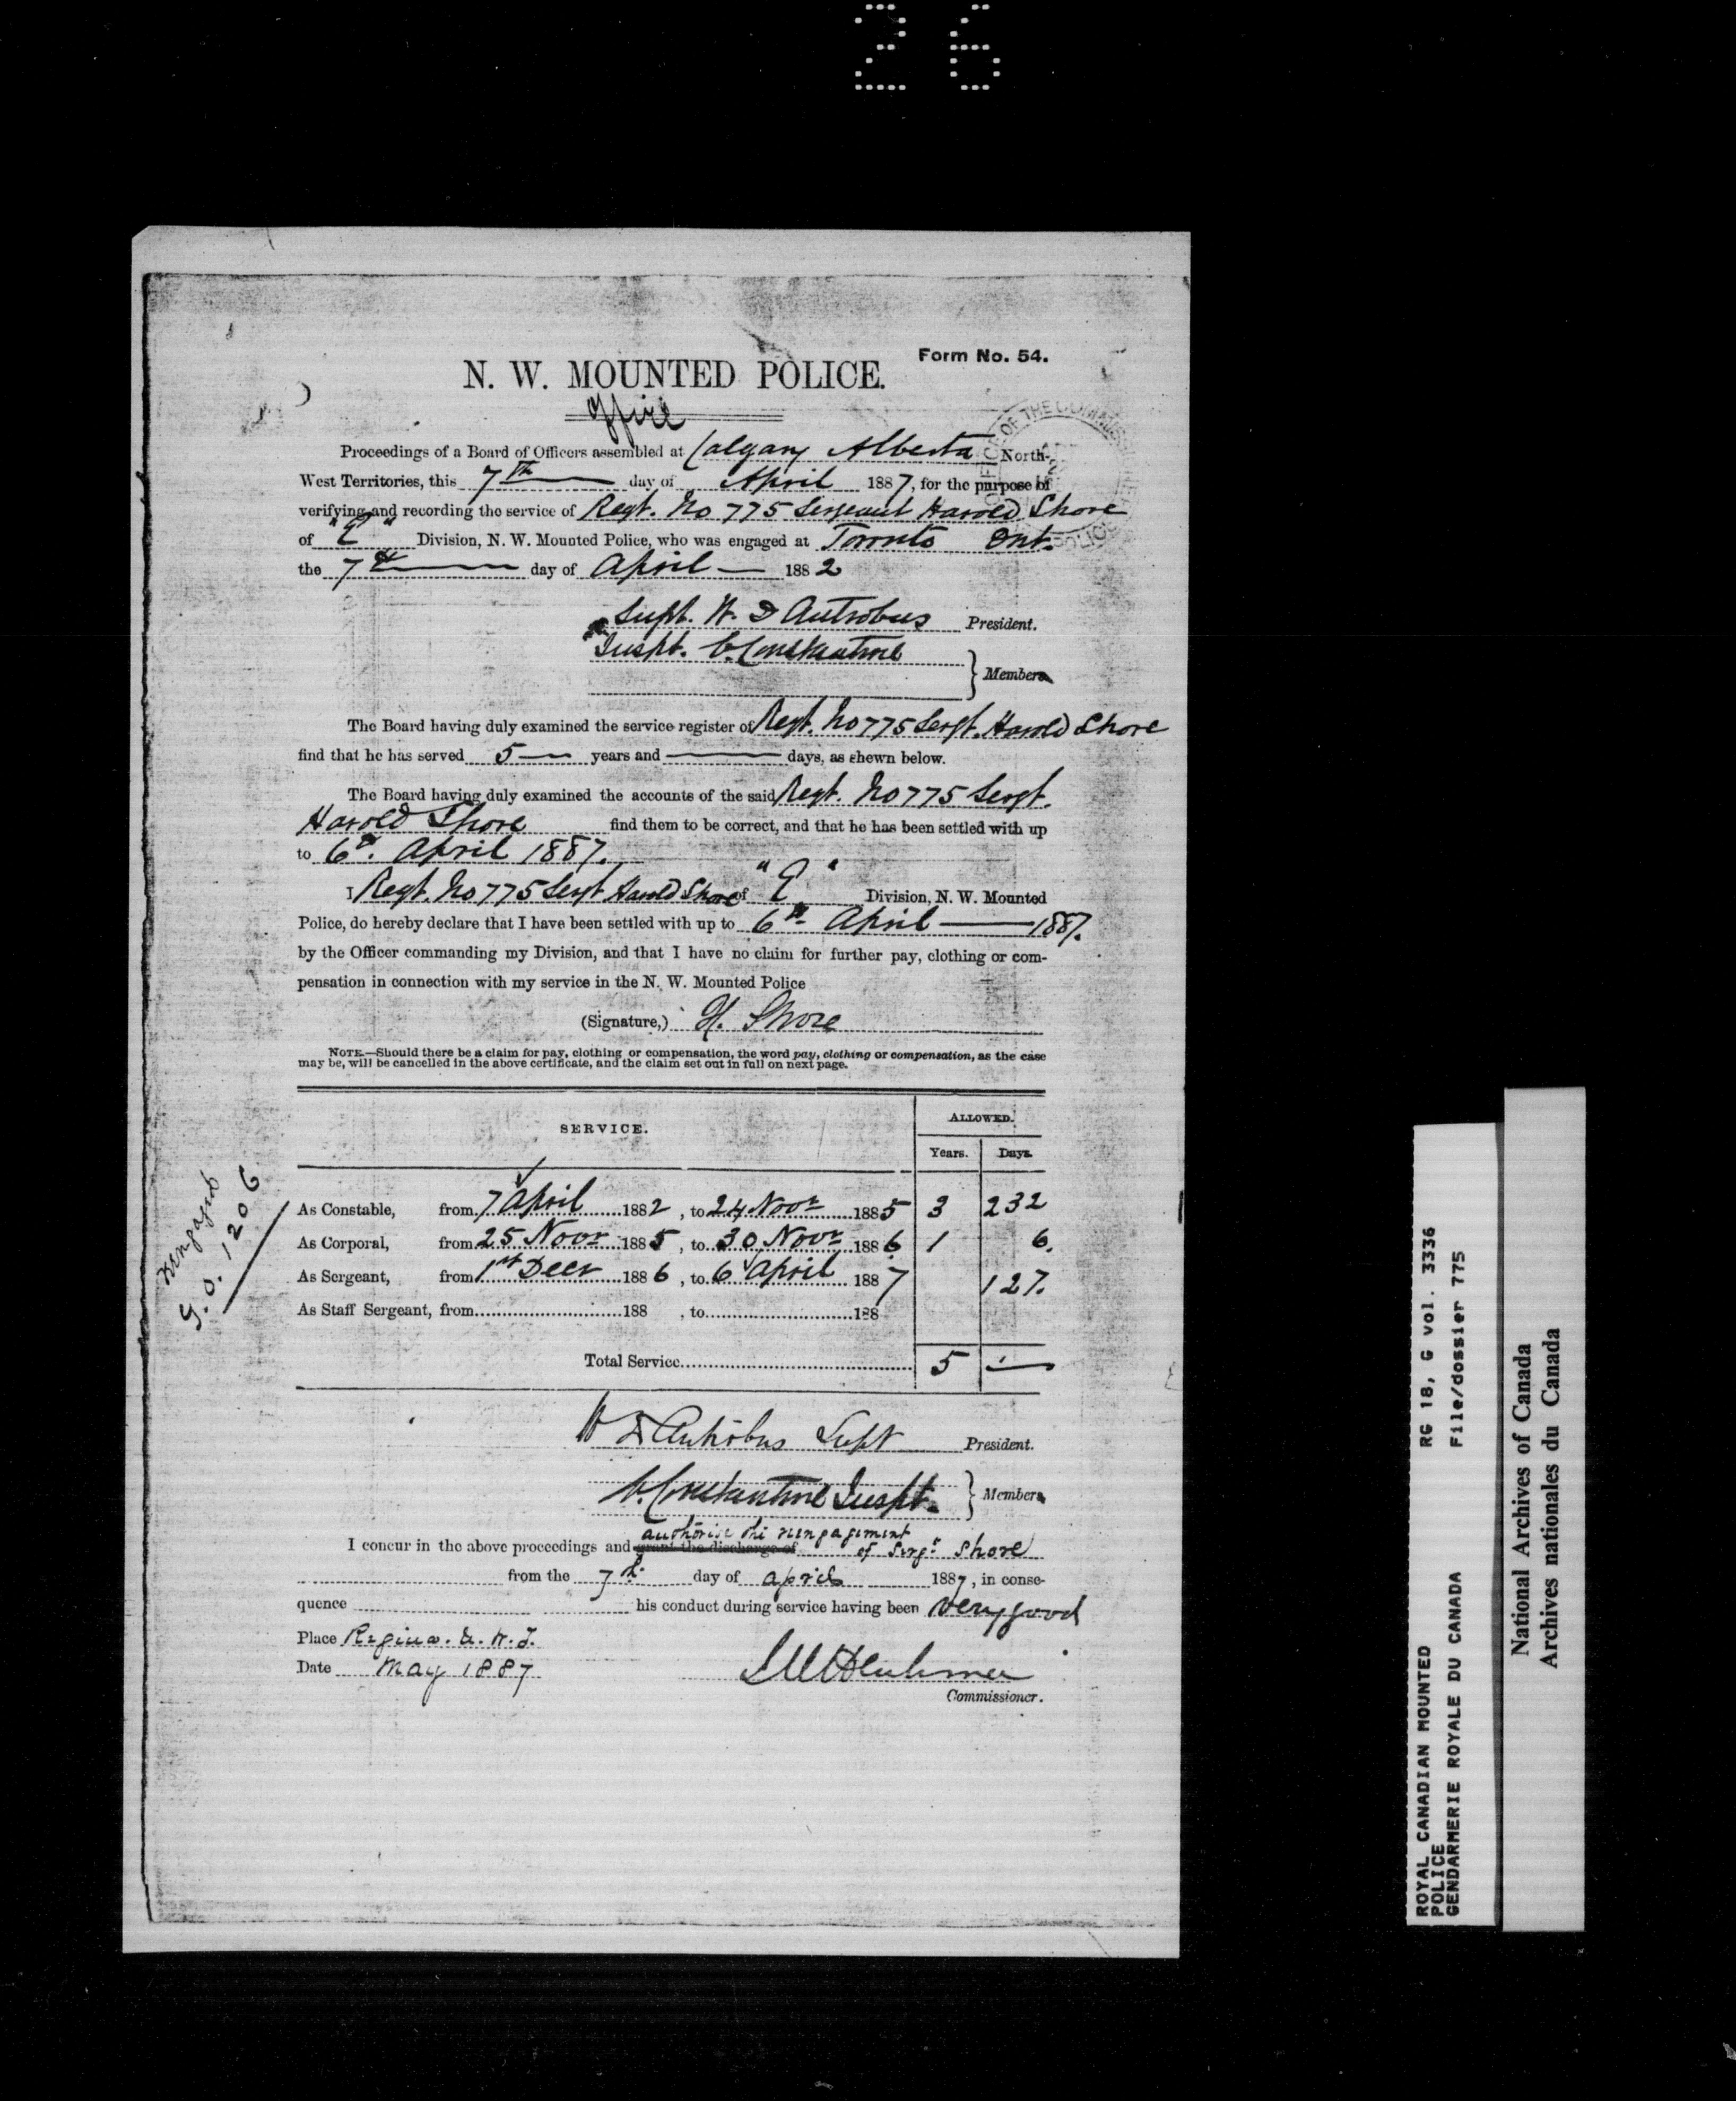 26
Form No. 54.
N. W. MOUNTED POLICE.
Office
Proceedings of a Board of Officers assembled at Calgary Alberta North-
West Territories, this 7th day of April 1887, for the purpose of
verifying and recording the service of Regt. No 775 Sergeant Harold Shore
of "E" Division, N. W. Mounted Police, who was engaged at Toronto Ont.
the 7th day of April 1882
Supt. W. D Antrobus President.
Inspt. C. Constantine
Members
The Board having duly examined the service register of Regt. No 775 Sergt. Harold Shore
find that he has served 5 years and — days, as shewn below.
The Board having duly examined the accounts of the said Regt. No 775 Sergt.
Harold Shore find them to be correct, and that he has been settled with up
to 6th. April 1887.
I Regt. No 775 Sergt Harold Shore of "E" Division, N. W. Mounted
Police, do hereby declare that I have been settled with up to 6th April — 1887.
by the Officer commanding my Division, and that I have no claim for further pay, clothing or com-
pensation in connection with my service in the N. W. Mounted Police
(Signature,) H. Shore
NOTE.—Should there be a claim for pay, clothing or compensation, the word pay, clothing or compensation, as the case
may be, will be cancelled in the above certificate, and the claim set out in full on next page.
SERVICE. ALLOWED.
Years. Days.
As Constable, from 7 April 1882, to 24 Novr 1885 3 232
As Corporal, from 25 Novr 1885, to 30 Novr 1886 1 6.
As Sergeant, from 1st Decr 1886, to 6 April 1887 127.
As Staff Sergeant, from 188 , to 188
Total Service 5 —
reengaged
G.O. 1206
W D Antrobus Supt President.
C. Constantine Inspt. Members
authorise the reengagement
I concur in the above proceedings and grant the discharge of of Sergt Shore
from the 7th day of April 1887, in conse-
quence his conduct during service having been very good
Place Regina. N. W. T.
Date May 1887
Commissioner.
ROYAL CANADIAN MOUNTED RG 18, G vol. 3336
POLICE
GENDARMERIE ROYALE DU CANADA File/dossier 775
National Archives of Canada
Archives nationales du Canada